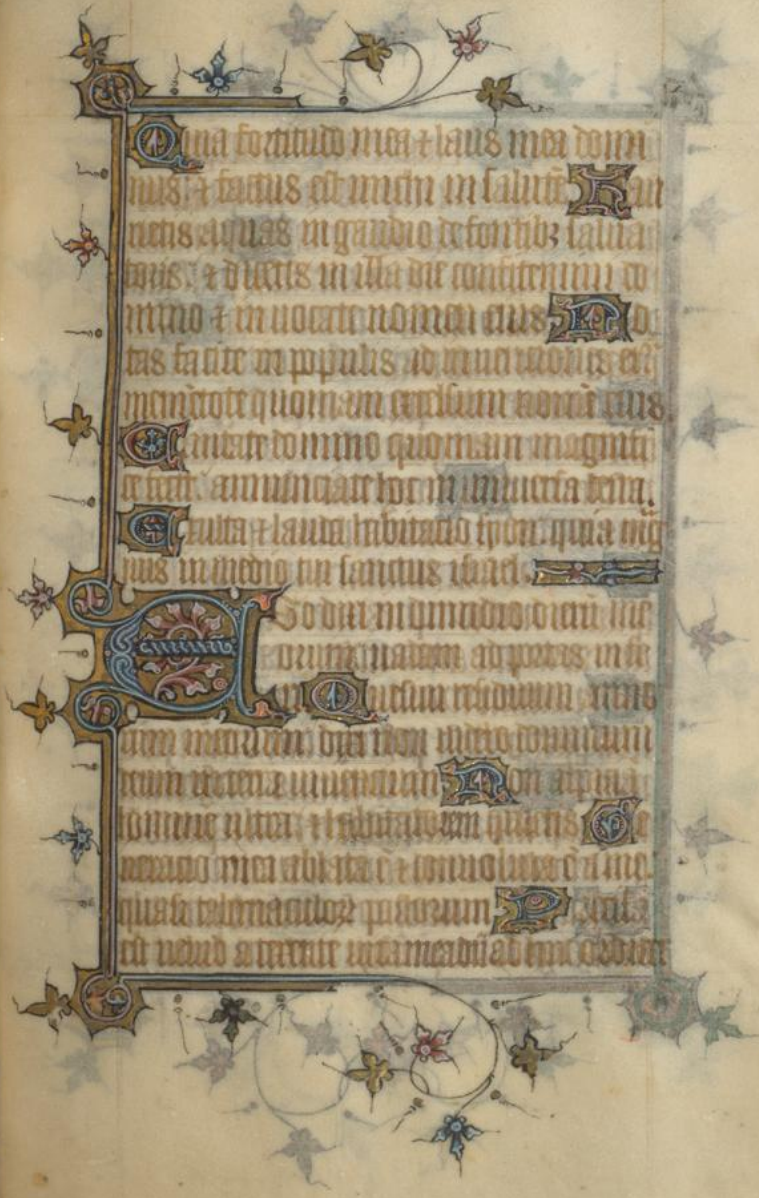 Quia fortitudo mea ⁊ laus mea domi
nus: ⁊ factus est michi in salutē Hau
rietis aquas in gaudio de fontibꝫ salua
toris: ⁊ dicetis in illa die confitemini do
mino ⁊ in uocate nomen eius No
tas facite in populis ad inuentiones eiꝰ
mem̄tote quoniam excelsum nomē eius
Cantate domino quoniam magnifi
ce fecit: annunciate hoc in uniuersa terra.
Exulta ⁊ lauda habitatio syon. quia mag
nus in medio tui sanctus israel.
Ego dixi in dimidio dierū me
orum: uadam ad portas infe
ri Quesiui residuum anno
rum meorum: dixi non uidebo dominum
deum in terra uiuencium Non aspiciā
hominē ultra: ⁊ habitatorem quietis Ge
neracio mea ablata ē ⁊ conuoluta ē a me.
quasi tabernaculoꝝ pastorum Precisa
est uelud a texente uita mea dū adhuc ordirer